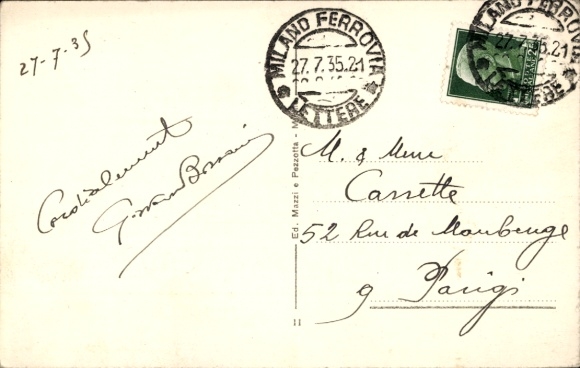 27-7-35
MILANO FERROVIA
27.7.35.21
LETTERE
MILANO FERROVIA
27.7.35.21
LETTERE
Cordialement
Ed. Mazzi e Pezzotta - M
II
M. & Mme
Cassette
52 Rue de Maubeuge
9 Parigi